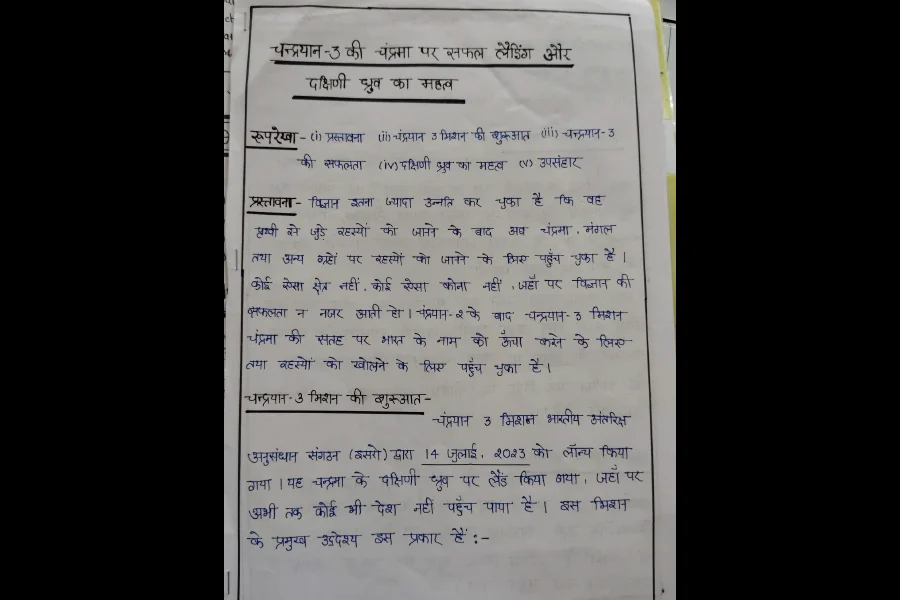 चन्द्रयान-3 की चंद्रमा पर सफल लैंडिंग और
दक्षिणी ध्रुव का महत्व
रूपरेखा - (i) प्रस्तावना (ii) चंद्रयान 3 मिशन की शुरूआत (iii) चन्द्रयान-3
की सफलता (iv) दक्षिणी ध्रुव का महत्व (v) उपसंहार
प्रस्तावना - विज्ञान इतना ज्यादा उन्नति कर चुका है कि वह
पृथ्वी से जुड़े रहस्यों को जानने के बाद अब चंद्रमा, मंगल
तथा अन्य ग्रहों पर रहस्यों को जानने के लिए पहुँच चुका है।
कोई ऐसा क्षेत्र नहीं, कोई ऐसा कोना नहीं, जहाँ पर विज्ञान की
सफलता न नजर आती हो। चंद्रयान-2 के बाद चन्द्रयान-3 मिशन
चंद्रमा की सतह पर भारत के नाम को ऊँचा करने के लिए
तथा रहस्यों को खोलने के लिए पहुँच चुका है।
चन्द्रयान-3 मिशन की शुरूआत -
चंद्रयान 3 मिशन भारतीय अंतरिक्ष
अनुसंधान संगठन (इसरो) द्वारा 14 जुलाई, 2023 को लॉन्च किया
गया। यह चन्द्रमा के दक्षिणी ध्रुव पर लैंड किया गया, जहाँ पर
अभी तक कोई भी देश नहीं पहुँच पाया है। इस मिशन
के प्रमुख उद्देश्य इस प्रकार हैं :-